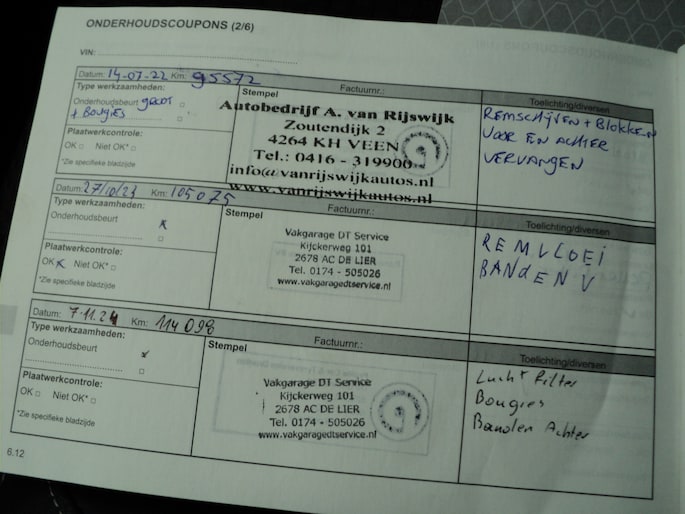 ONDERHOUDSCOUPONS (2/6)
VIN:
Datum: 14-07-22 Km: 95572
Type werkzaamheden:
Onderhoudsbeurt GROOT
+ BOUGIES
Plaatwerkcontrole:
OK Niet OK*
*Zie specifieke bladzijde
Factuurnr.:
Stempel
Autobedrijf A. van Rijswijk
Zoutendijk 2
4264 KH VEEN
Tel.: 0416 - 319900
info@vanrijswijkautos.nl
www.vanrijswijkautos.nl
Toelichting/diversen
REMSCHIJVEN + BLOKKEN
VOOR EN ACHTER
VERVANGEN
Datum: 27/10/23 Km: 105075
Type werkzaamheden:
Onderhoudsbeurt
Plaatwerkcontrole:
OK Niet OK*
*Zie specifieke bladzijde
Factuurnr.:
Stempel
Vakgarage DT Service
Kijckerweg 101
2678 AC DE LIER
Tel. 0174 - 505026
www.vakgaragedtservice.nl
Toelichting/diversen
REMVLOEI
BANDEN V
Datum: 7.11.24 Km: 114098
Type werkzaamheden:
Onderhoudsbeurt
Plaatwerkcontrole:
OK Niet OK*
*Zie specifieke bladzijde
Factuurnr.:
Stempel
Vakgarage DT Service
Kijckerweg 101
2678 AC DE LIER
Tel. 0174 - 505026
www.vakgaragedtservice.nl
Toelichting/diversen
Lucht Filter
Bougies
Banden Achter
6.12